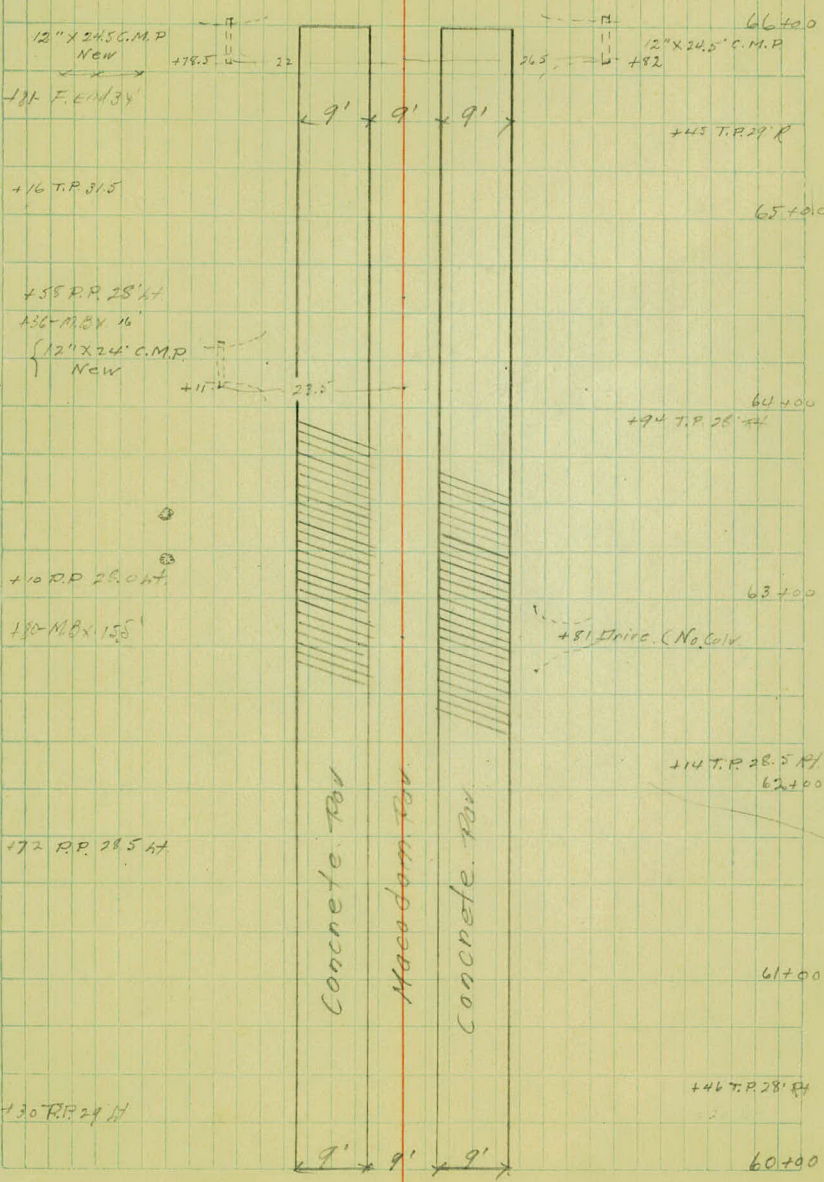 66+00
12" X 24.5 C.M.P
New
12" X 24.5' C.M.P.
+78.5
22
26.5
+82
+81 F. End 34'
9' 9' 9'
+45 T.P. 29' R
+16 T.P. 31.5
65+00
+58 P.P. 28' Lt
+36-M.Bx 16'
12" X 24' C.M.P.
New
+11
23.5
64+00
+94 T.P. 28' Rt
+10 P.P 28.0 Lt.
63+00
+80-M.Bx. 15.5'
+81 Drive. (No Culv
+14 T.P. 28.5 Rt
62+00
+72 P.P. 28.5 Lt
Concrete. Pav
Macadam. Pav
Concrete. Pav
61+00
+46 T.P. 28' Rt
+30 P.P. 29 Lt
9' 9' 9'
60+00